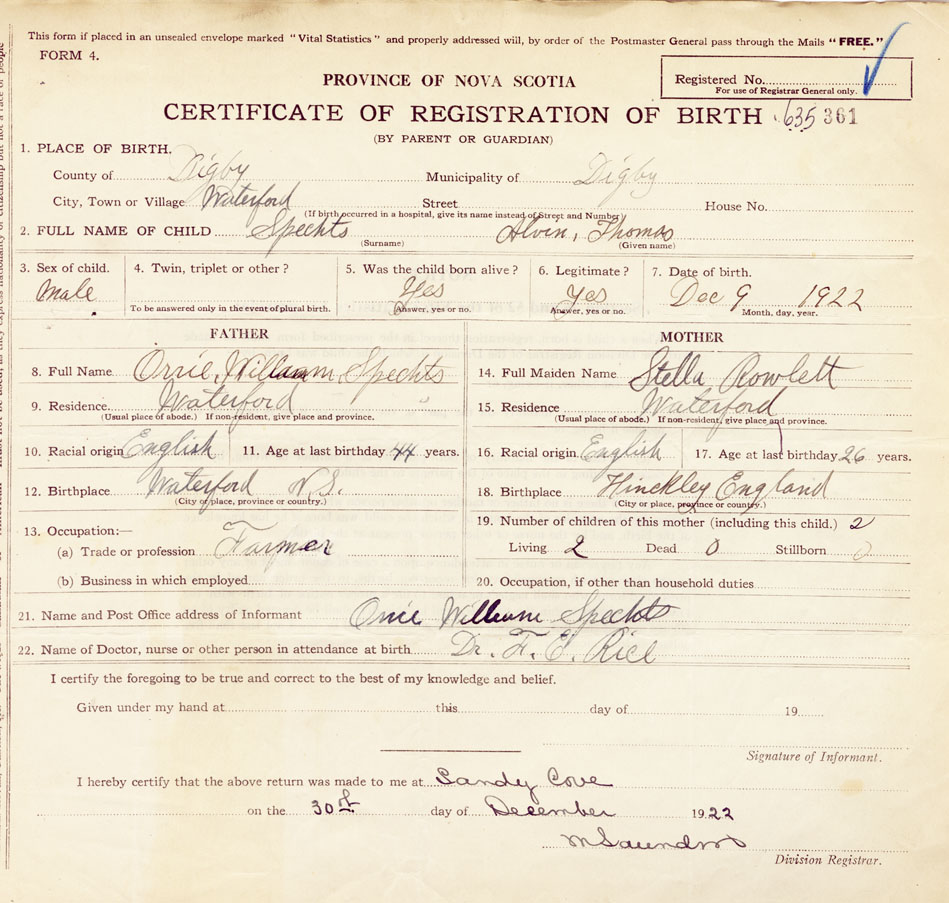 This form if placed in an unsealed envelope marked "Vital Statistics" and properly addressed will, by order of the Postmaster General pass through the Mails "FREE."
FORM 4.
PROVINCE OF NOVA SCOTIA
Registered No.
For use of Registrar General only.
CERTIFICATE OF REGISTRATION OF BIRTH 635 361
(BY PARENT OR GUARDIAN)
1. PLACE OF BIRTH.
County of Digby Municipality of Digby
City, Town or Village Waterford Street House No.
(If birth occurred in a hospital, give its name instead of Street and Number)
2. FULL NAME OF CHILD Spechts Alvin, Thomas
(Surname) (Given name)
3. Sex of child. 4. Twin, triplet or other? 5. Was the child born alive? 6. Legitimate? 7. Date of birth.
Male Yes Yes Dec 9 1922
To be answered only in the event of plural birth. Answer, yes or no. Answer, yes or no. Month, day, year.
FATHER MOTHER
8. Full Name Orrie William Spechts 14. Full Maiden Name Stella Rowlett
9. Residence Waterford " 15. Residence Waterford
(Usual place of abode.) If non-resident, give place and province. (Usual place of abode.) If non-resident, give place and province.
10. Racial origin English 11. Age at last birthday 44 years. 16. Racial origin English 17. Age at last birthday 26 years.
12. Birthplace Waterford N.S. 18. Birthplace Hinckley England
(City or place, province or country.) (City or place, province or country.)
13. Occupation:— 19. Number of children of this mother (including this child.) 2
(a) Trade or profession Farmer Living 2 Dead 0 Stillborn 0
(b) Business in which employed 20. Occupation, if other than household duties
21. Name and Post Office address of Informant Orrie William Spechts
22. Name of Doctor, nurse or other person in attendance at birth Dr. F. E. Rice
I certify the foregoing to be true and correct to the best of my knowledge and belief.
Given under my hand at this day of 19
Signature of Informant.
I hereby certify that the above return was made to me at Sandy Cove
on the 30th day of December 1922
M Saunders
Division Registrar.